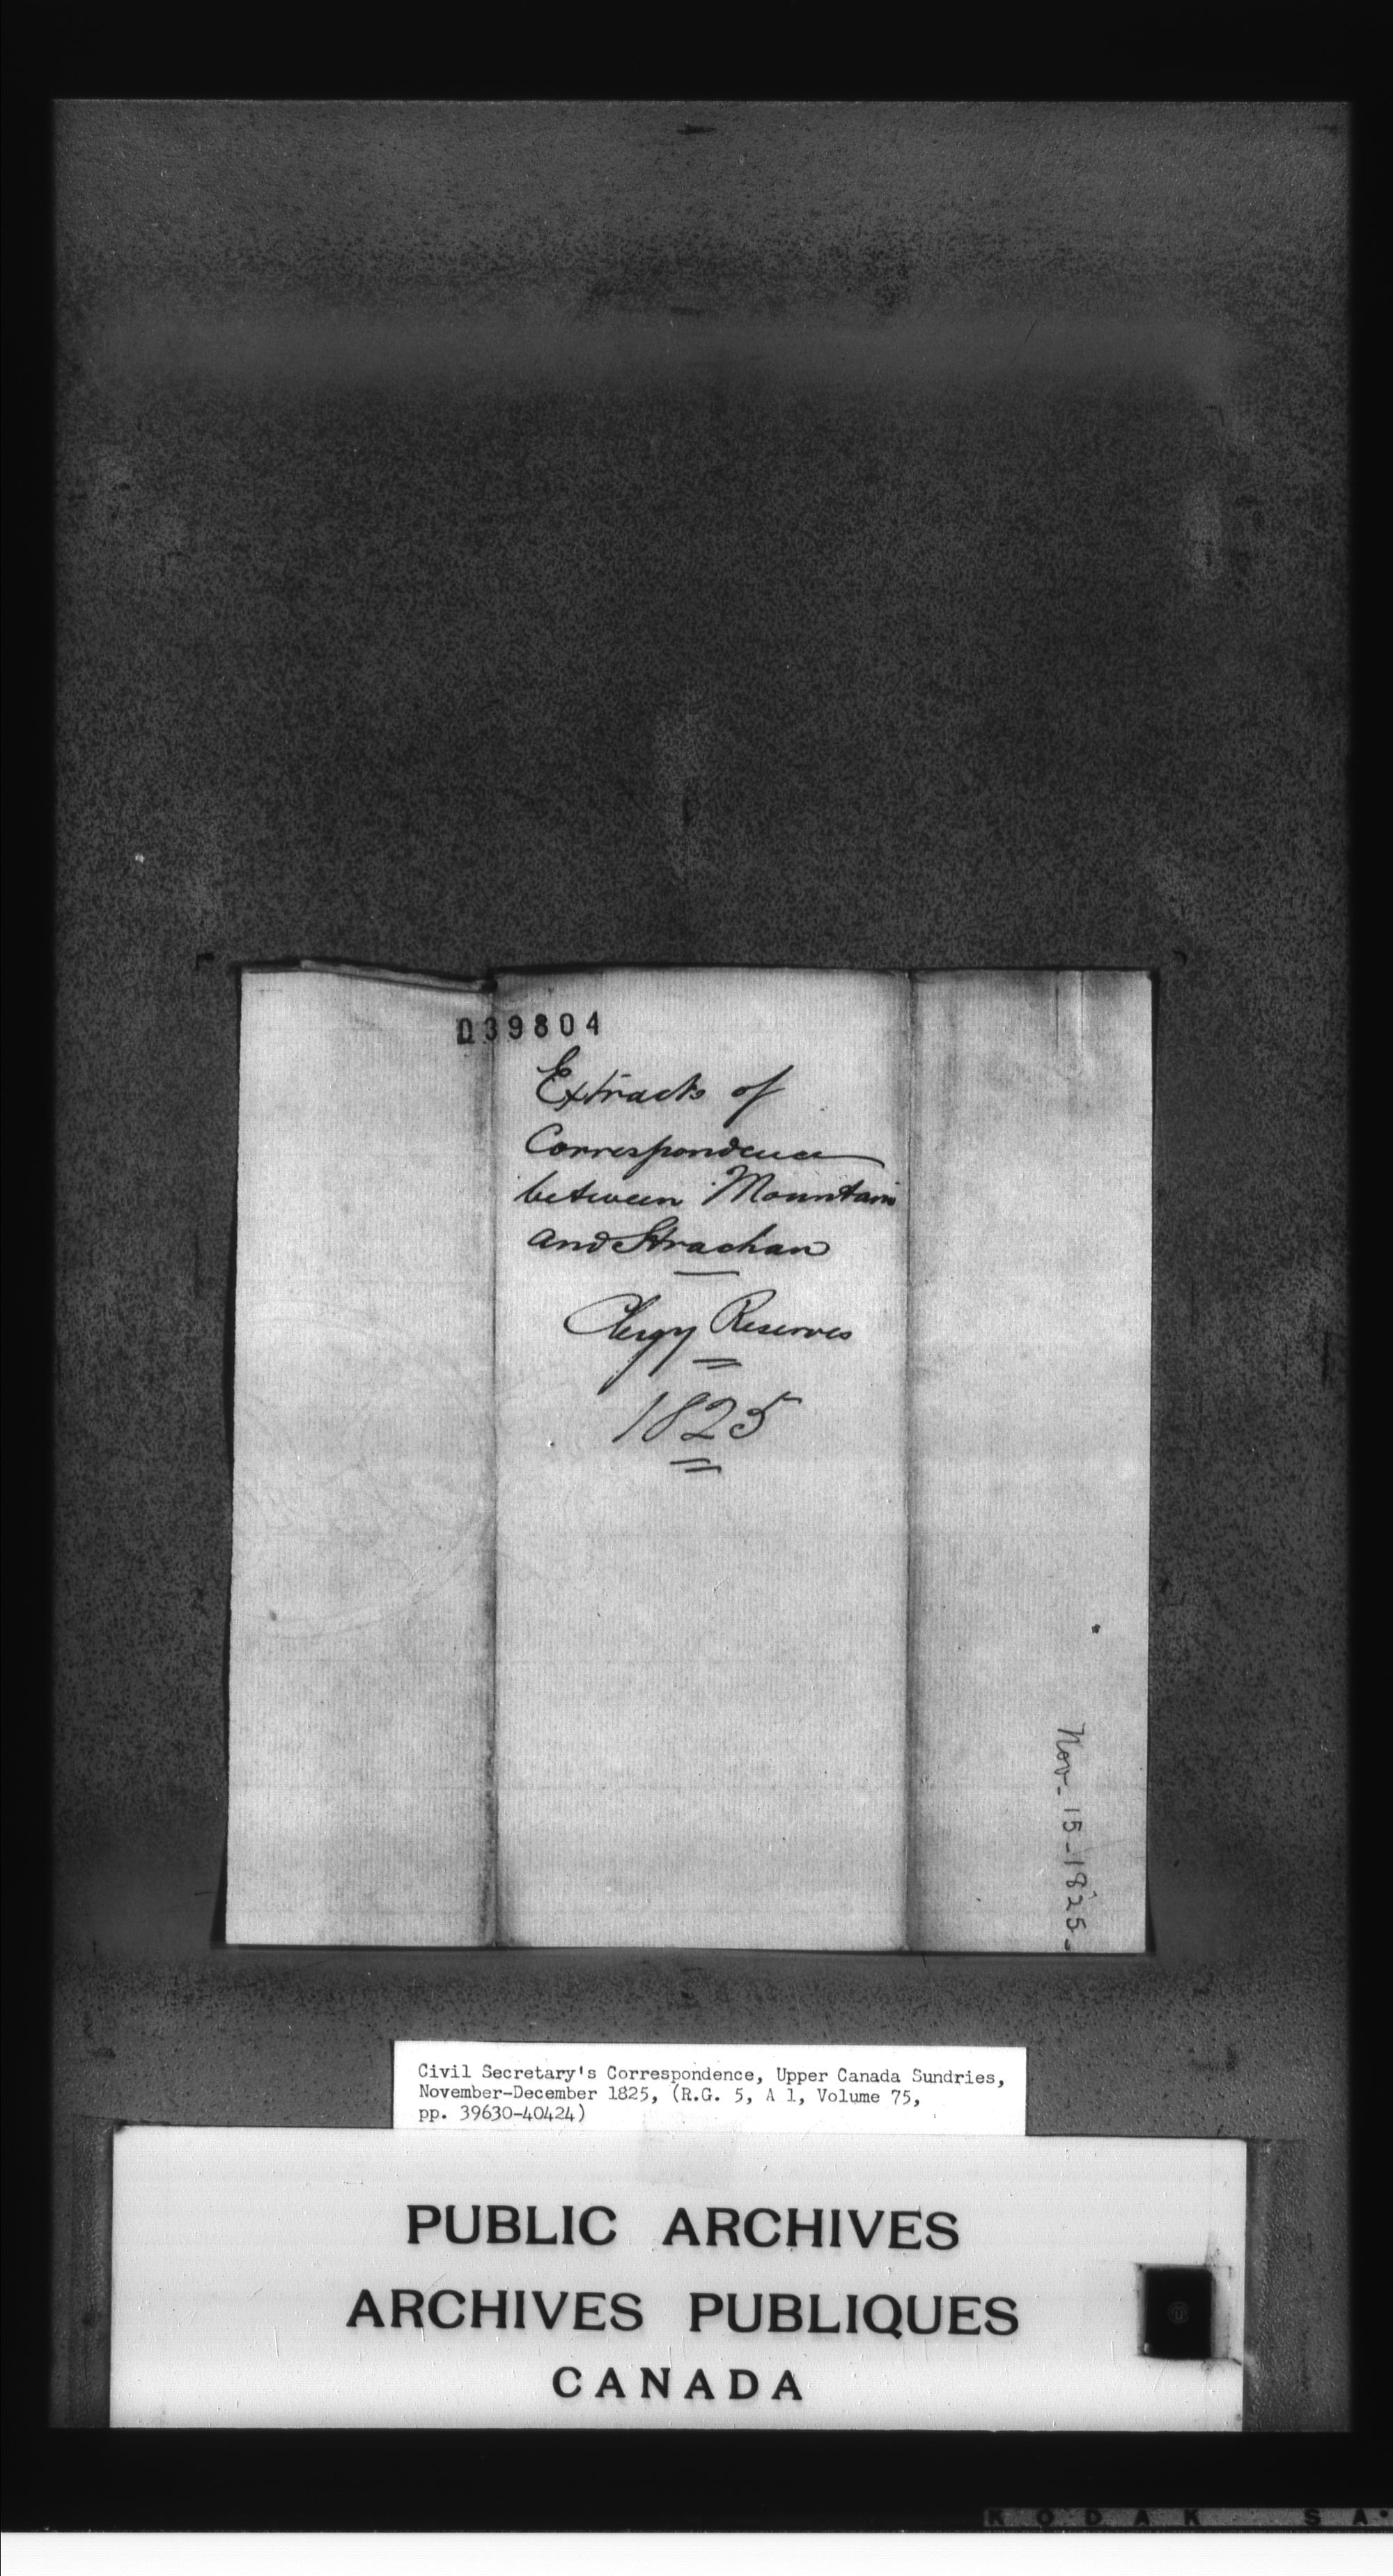 039804
Extracts of
Correspondence
between Mountain
and Strachan
Clergy Reserves
1825
Nov- 15-1825-
Civil Secretary's Correspondence, Upper Canada Sundries,
November-December 1825, (R.G. 5, A 1, Volume 75,
pp. 39630-40424)
PUBLIC ARCHIVES
ARCHIVES PUBLIQUES
CANADA
KODAK SA